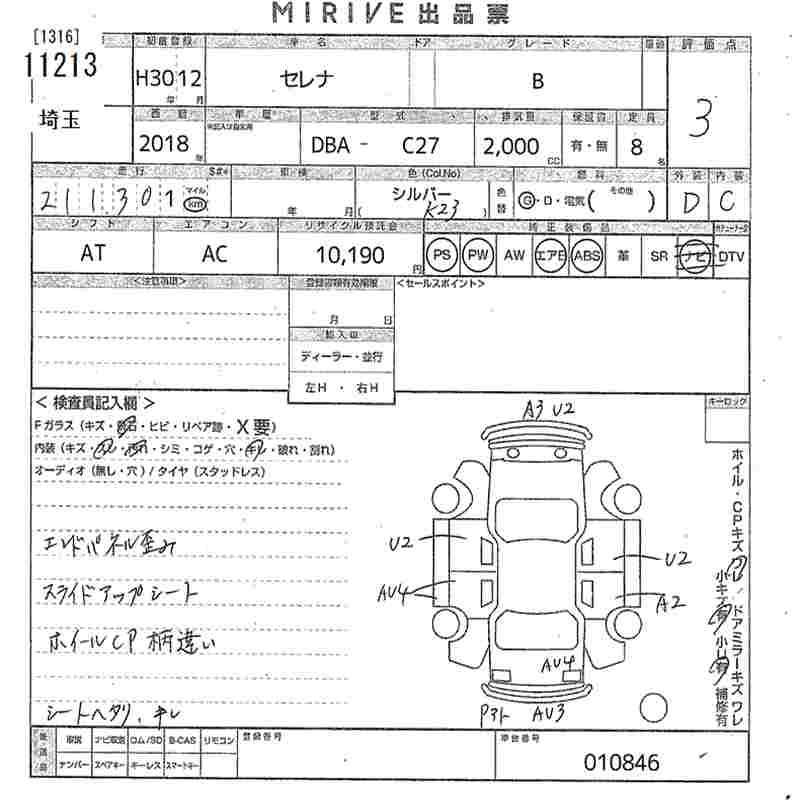 MIRIVE 出品票
[1316]
11213
埼玉
初度登録 車名 ドア グレード 評価点
H30 12 セレナ B 3
年 月
西暦 車歴 型式 排気量 保証書 定員
2018 年 DBA - C27 2,000 CC 有・無 8 名
走行 車検 色(Col.No) 燃料 外装 内装
211,301 マイル km 年 月 シルバー K23 色替 G・D・電気( その他 ) D C
シフト エアコン リサイクル預託金 純正装備品
AT AC 10,190 円 PS PW AW エアB ABS 革 SR ナビ DTV
<注意事項> 登録書類有効期限 <セールスポイント>
月 日
輸入車
ディーラー・並行
左H ・ 右H
< 検査員記入欄 > キーロック
Fガラス(キズ・ ・ヒビ・リペア跡・X要)
内装(キズ・ ・ ・シミ・コゲ・穴・ ・破れ・割れ)
オーディオ(無し・穴)/タイヤ(スタッドレス)
A3 U2
エンドパネル歪み
U2
U2
スライドアップシート
AU4
A2
ホイールCP 柄違い
AU4
シートヘタリ、キレ
Pアト AU3
ホイル・CPキズ ワレ/ドアミラーキズ ワレ
小キズ有 小U有 補修有
後送品 取説 ナビ取説 ロム/SD B-CAS リモコン 登録番号 車台番号
ナンバー スペアキー キーレス スマートキー 010846